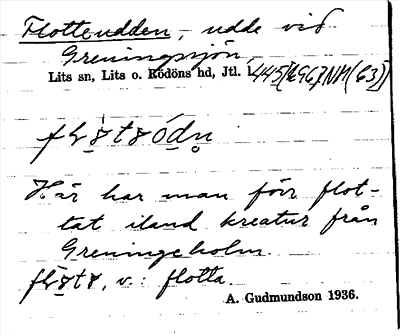 Flotteudden, udde vid
Greningssjön,
Lits sn, Lits o. Rödöns hd, Jtl. l.
Här har man förr flot-
tat iland kreatur från
Greningeholm.
v.: flotta.
A. Gudmundson 1936.